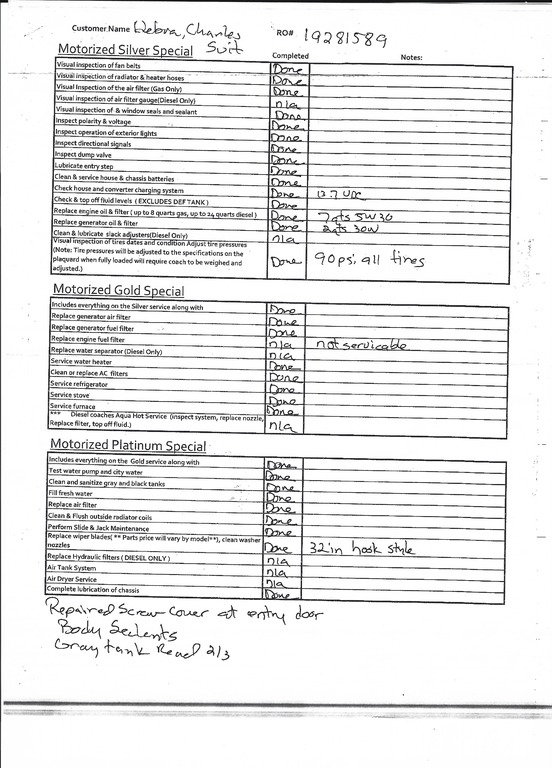 Customer Name Debra, Charles RO# 19281589
Suit
Motorized Silver Special Completed Notes:
Visual inspection of fan belts Done
Visual inspection of radiator & heater hoses Done
Visual Inspection of the air filter (Gas Only) Done
Visual inspection of air filter gauge(Diesel Only) n/a
Visual inspection of & window seals and sealant Done
Inspect polarity & voltage Done
Inspect operation of exterior lights Done
Inspect directional signals Done
Inspect dump valve Done
Lubricate entry step Done
Clean & service house & chassis batteries Done
Check house and converter charging system Done 13.7 VDC
Check & top off fluid levels ( EXCLUDES DEF TANK ) Done
Replace engine oil & filter ( up to 8 quarts gas, up to 24 quarts diesel ) Done 7qts 5W30
Replace generator oil & filter Done 2qts 30W
Clean & lubricate slack adjusters(Diesel Only) n/a
Visual inspection of tires dates and condition Adjust tire pressures
(Note: Tire pressures will be adjusted to the specifications on the
plaquard when fully loaded will require coach to be weighed and Done 90psi all tires
adjusted.)
Motorized Gold Special
Includes everything on the Silver service along with Done
Replace generator air filter Done
Replace generator fuel filter Done
Replace engine fuel filter n/a not servicable
Replace water separator (Diesel Only) n/a
Service water heater Done
Clean or replace AC filters Done
Service refrigerator Done
Service stove Done
Service furnace Done
*** Diesel coaches Aqua Hot Service (inspect system, replace nozzle,
Replace filter, top off fluid.) n/a
Motorized Platinum Special
Includes everything on the Gold service along with Done
Test water pump and city water Done
Clean and sanitize gray and black tanks Done
Fill fresh water Done
Replace air filter Done
Clean & Flush outside radiator coils Done
Perform Slide & Jack Maintenance Done
Replace wiper blades( ** Parts price will vary by model**), clean washer
nozzles Done 32in hook style
Replace Hydraulic filters ( DIESEL ONLY ) n/a
Air Tank System n/a
Air Dryer Service n/a
Complete lubrication of chassis Done
Repaired Screw Cover at entry door
Body Sealents
Gray tank Read 2/3